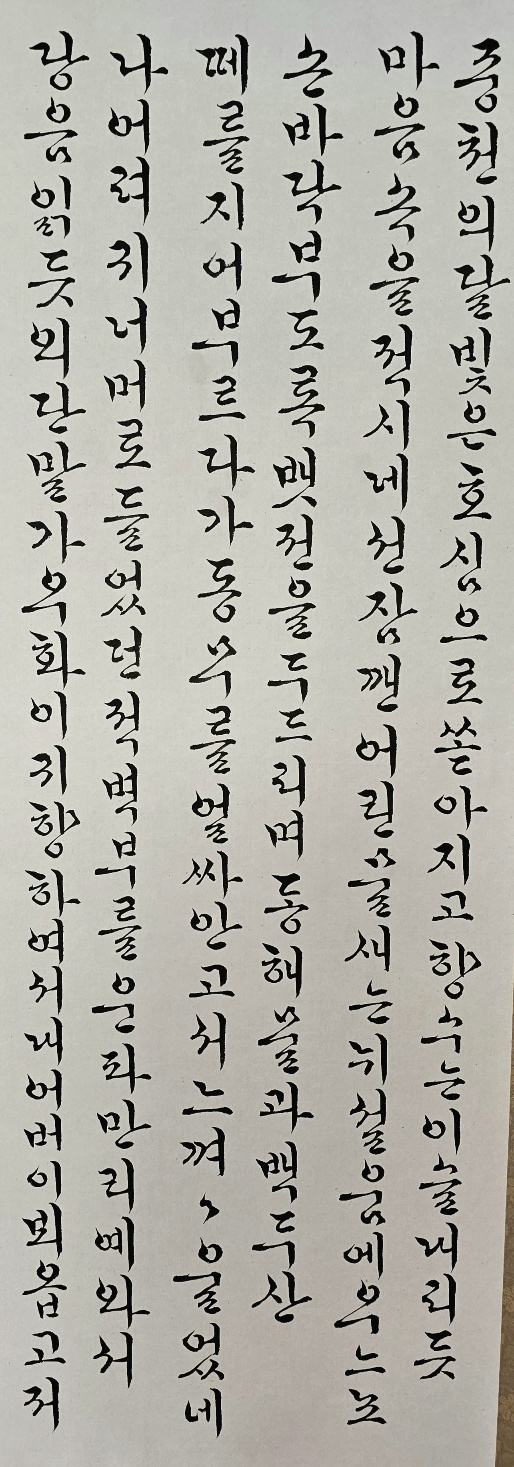 중천의달빛은호심으로쏟아지고향수는이슬내리듯
마음속을적시네선잠깬어린물새는뉘설움에우느뇨
손바닥부도록뱃전을두드리며동해물과백두산
떼를지어부르다가동무를얼싸안고서느껴〻울었네
나어려귀너머로들었던적벽부를운파만리예와서
당음읽듯외단말가우화이귀향하여서내어버이뵈옵고저